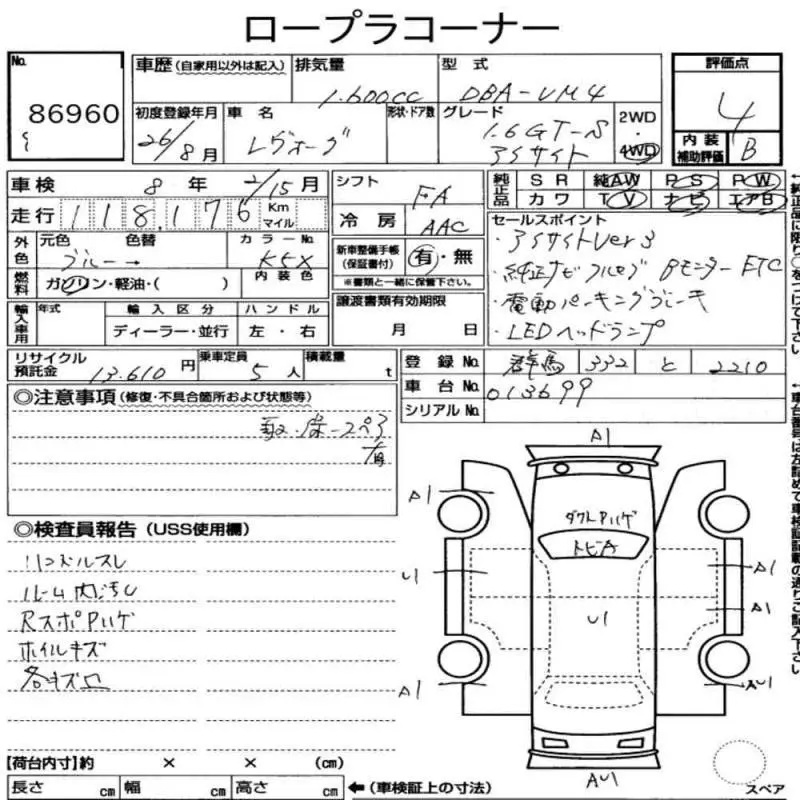 ロープラコーナー
No. 86960
車歴 (自家用以外は記入) 排気量 1.600cc 型式 DBA-VM4 評価点 4
初度登録年月 26/8月 車名 レヴォーグ 形状・ドア数 グレード 1.6GT-S アイサイト 2WD・4WD
内装補助評価 B
車検 8年 2/15月 シフト FA 純正品 SR 純AW PS PW
走行 118.176 Km マイル 冷房 AAC カワ TV ナビ エアB
外色 元色 ブルー 色替 → カラーNo. K5X
新車整備手帳 (保証書付) 有・無
※書類と一緒に保管下さい。
燃料 ガソリン・軽油・( ) 内装色
セールスポイント
・アイサイトVer3
・純正ナビ フルセグ Bモニター ETC
・電動パーキングブレーキ
・LEDヘッドランプ
輸入車用 年式 輸入区分 ハンドル
ディーラー・並行 左・右
譲渡書類有効期限
月 日
リサイクル預託金 13.610円 乗車定員 5人 積載量 t
登録No. 群馬 332 と 2210
車台No. 013699
シリアルNo.
◎注意事項 (修復・不具合箇所および状態等)
取・保・スペア
◎検査員報告 (USS使用欄)
ハンドルスレ
ルーム内汚し
RスポPハゲ
ホイルキズ
各キズ凹
A1
A1
ダクトPハゲ
トビA
U1
A1
U1
A1
A1
AU1
AU1
スペア
【荷台内寸】約 × × (cm)
長さ cm 幅 cm 高さ cm ←(車検証上の寸法)
←純正品に限り○をつけて下さい
←車台番号は左詰めで車検証記載の通りご記入下さい